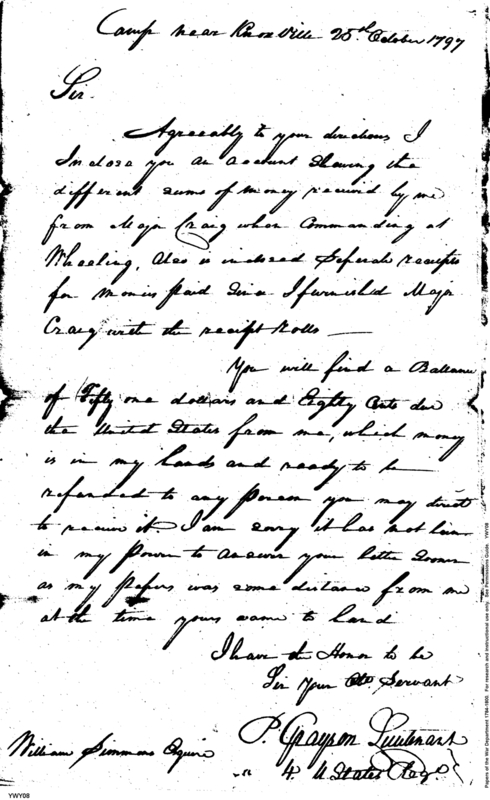 Camp near Knoxville 25th October 1797
Sir
Agreeably to your directions I
Inclose you an account Shewing the
different sums of money received by me
from Major Craig when Commanding at
Wheeling, also is inclosed Seperate receipts
for monies paid Since I furnish'd Major
Craig with the receipt Rolls —
You will find a Ballance
of Fifty one dollars and Eighty Cents due
the United States from me, which money
is in my hands and ready to be
refunded to any Person you may direct
to receive it. I am sorry it has not been
in my Power to answer your letter Sooner
as my Papers was some distance from me
at the time yours came to hand
I have the Honor to be
Sir Your Obt Servant
P. Grayson Lieutenant
4 U States Regt
William Simmons Esquire
YWY08
Papers of the War Department 1784-1800. For research and instructional use only. See Permissions Guide YWY08